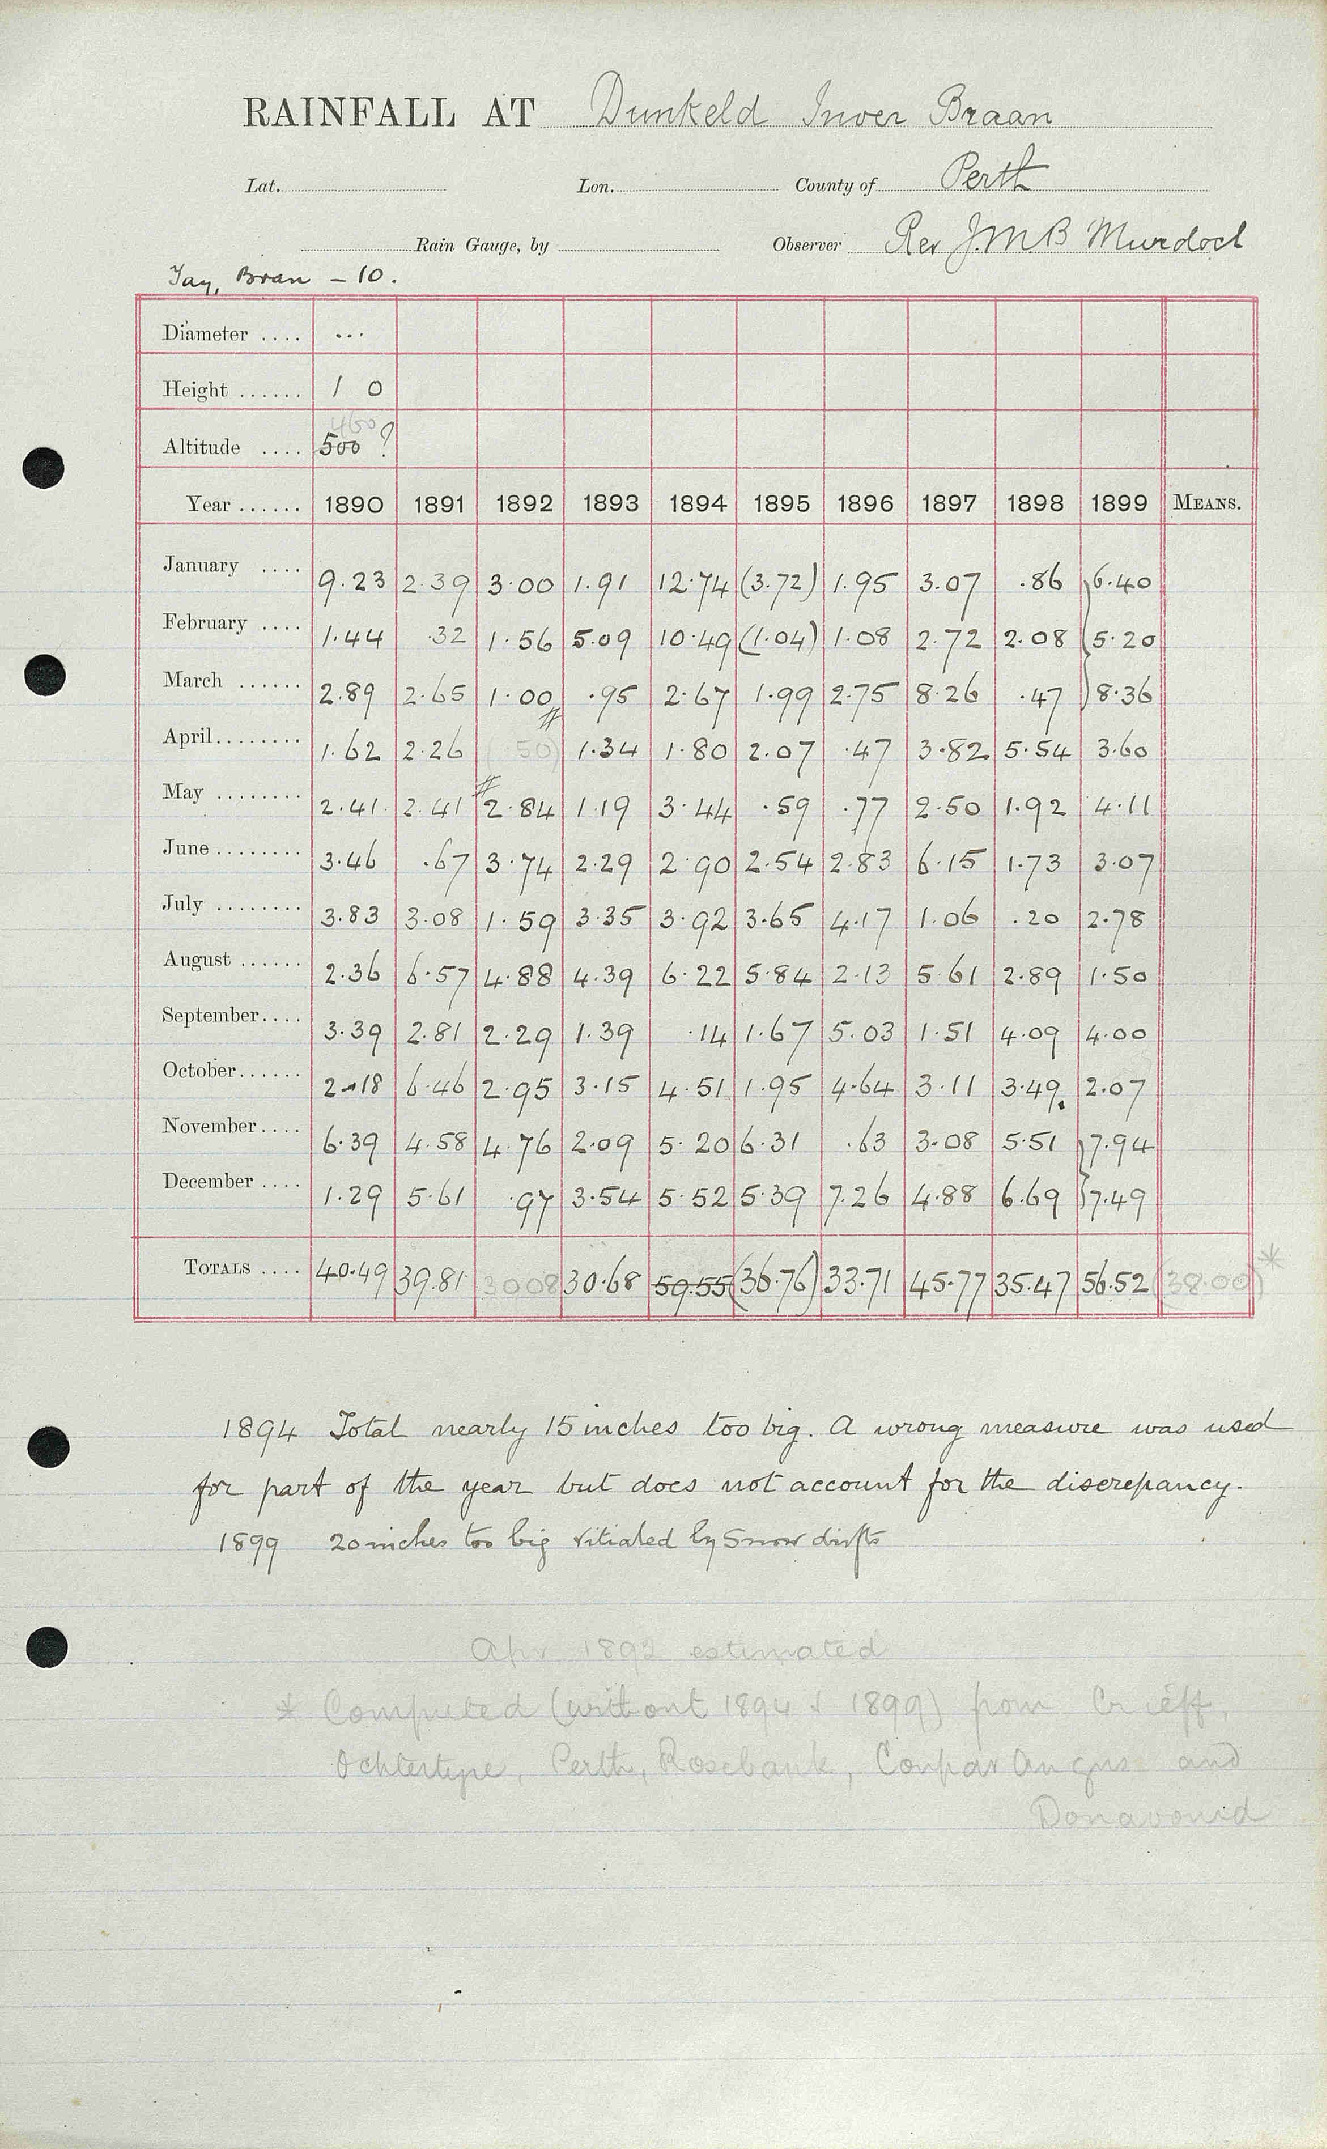 RAINFALL AT Dunkeld Inver Braan
Lat. Lon. County of Perth
Rain Gauge, by Observer Rev J.M.B Murdoch
Tay, Bran - 10.
Diameter .... ...
Height ...... 1 0
460
Altitude .... 500 ?
Year ...... 1890 1891 1892 1893 1894 1895 1896 1897 1898 1899 MEANS.
January .... 9.23 2.39 3.00 1.91 12.74 (3.72) 1.95 3.07 .86 6.40
February .... 1.44 .32 1.56 5.09 10.49 (1.04) 1.08 2.72 2.08 5.20
March ...... 2.89 2.65 1.00 .95 2.67 1.99 2.75 8.26 .47 8.36
April ........ 1.62 2.26 (.50) 1.34 1.80 2.07 .47 3.82 5.54 3.60
May ........ 2.41 2.41 2.84 1.19 3.44 .59 .77 2.50 1.92 4.11
June ........ 3.46 .67 3.74 2.29 2.90 2.54 2.83 6.15 1.73 3.07
July ........ 3.83 3.08 1.59 3.35 3.92 3.65 4.17 1.06 .20 2.78
August ...... 2.36 6.57 4.88 4.39 6.22 5.84 2.13 5.61 2.89 1.50
September .... 3.39 2.81 2.29 1.39 .14 1.67 5.03 1.51 4.09 4.00
October ...... 2.18 6.46 2.95 3.15 4.51 1.95 4.64 3.11 3.49 2.07
November .... 6.39 4.58 4.76 2.09 5.20 6.31 .63 3.08 5.51 7.94
December .... 1.29 5.61 .97 3.54 5.52 5.39 7.26 4.88 6.69 7.49
TOTALS .... 40.49 39.81 30.08 30.68 59.55 (36.76) 33.71 45.77 35.47 56.52 (38.00)*
1894 Total nearly 15 inches too big. A wrong measure was used
for part of the year but does not account for the discrepancy.
1899 20 inches too big vitiated by Snow drifts
Apr. 1892 estimated
* Computed (without 1894 & 1899) from Crieff,
Ochtertyre, Perth, Rosebank, Coupar Angus and
Donavourd